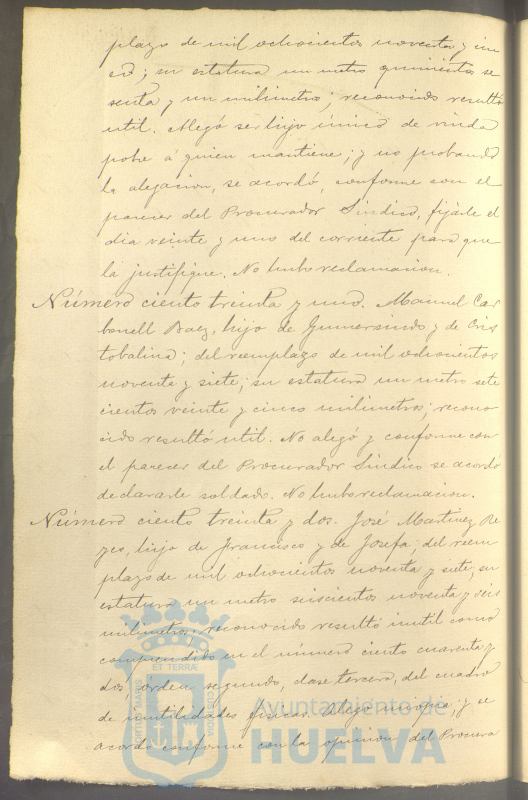 plazo de mil ochocientos noventa y cin
co; su estatura un metro quinientos se
senta y un milimetros; reconocido resultó
util. Alegó ser hijo único de viuda
pobre á quien mantiene; y no probando
la alegacion, se acordó, conforme con el
parecer del Procurador Sindico, fijarle el
dia veinte y uno del corriente para que
la justifique. No hubo reclamacion.
Número ciento treinta y uno. Manuel Car
bonell Baez, hijo de Gumersindo y de Cris
tobalina; del reemplazo de mil ochocientos
noventa y siete; su estatura un metro sete
cientos veinte y cinco milimetros; recono
cido resultó util. No alegó y conforme con
el parecer del Procurador Sindico se acordó
declararle soldado. No hubo reclamacion.
Número ciento treinta y dos. José Martinez Re
yes, hijo de Francisco y de Josefa; del reem
plazo de mil ochocientos noventa y siete; su
estatura un metro seiscientos noventa y seis
milimetros; reconocido resultó inutil como
comprendido en el número ciento cuarenta y
dos, orden segundo, clase tercera, del cuadro
de inutilidades fisicas. Alegó y se
acordó conforme con la opinion del Procura
PORTUS MARIS ET TERRÆ CUSTODIA
Ayuntamiento de
HUELVA